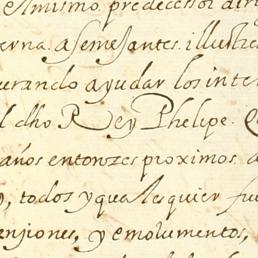 elmismo. predecessor
erna. asemejantes. illustre
urando ayudar los inte
l dho Rey Phelipe.
años entonzes proximos. a
, todos y quales quier fu
ensiones, y emolumentos,